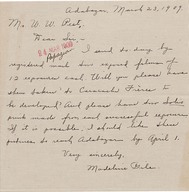 Adabazar, March 23, 1919.
Mr. W. W. Peet,
Dear Sir -
I send to day by
registered mail two exposed filmes of
12 exposures each. Will you please have
them taken to
be developed? And please have two
print made from each successful exposure
If it is possible, I should like these
pictures to reach Adabazar by April 1.
Very sincerely,
Madeline Gile